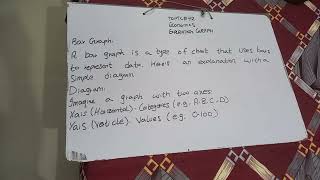 Economics
Bar Graph:
A bar graph is a type of chart that uses bars
to represent data. Here's an explanation with a
Simple diagram
Diagram:
Imagine a graph with two axes:
Xais (Horizontal). Categories (e.g. A.B.C.D)
Yais (Veticle). Values (e.g. 0-100)